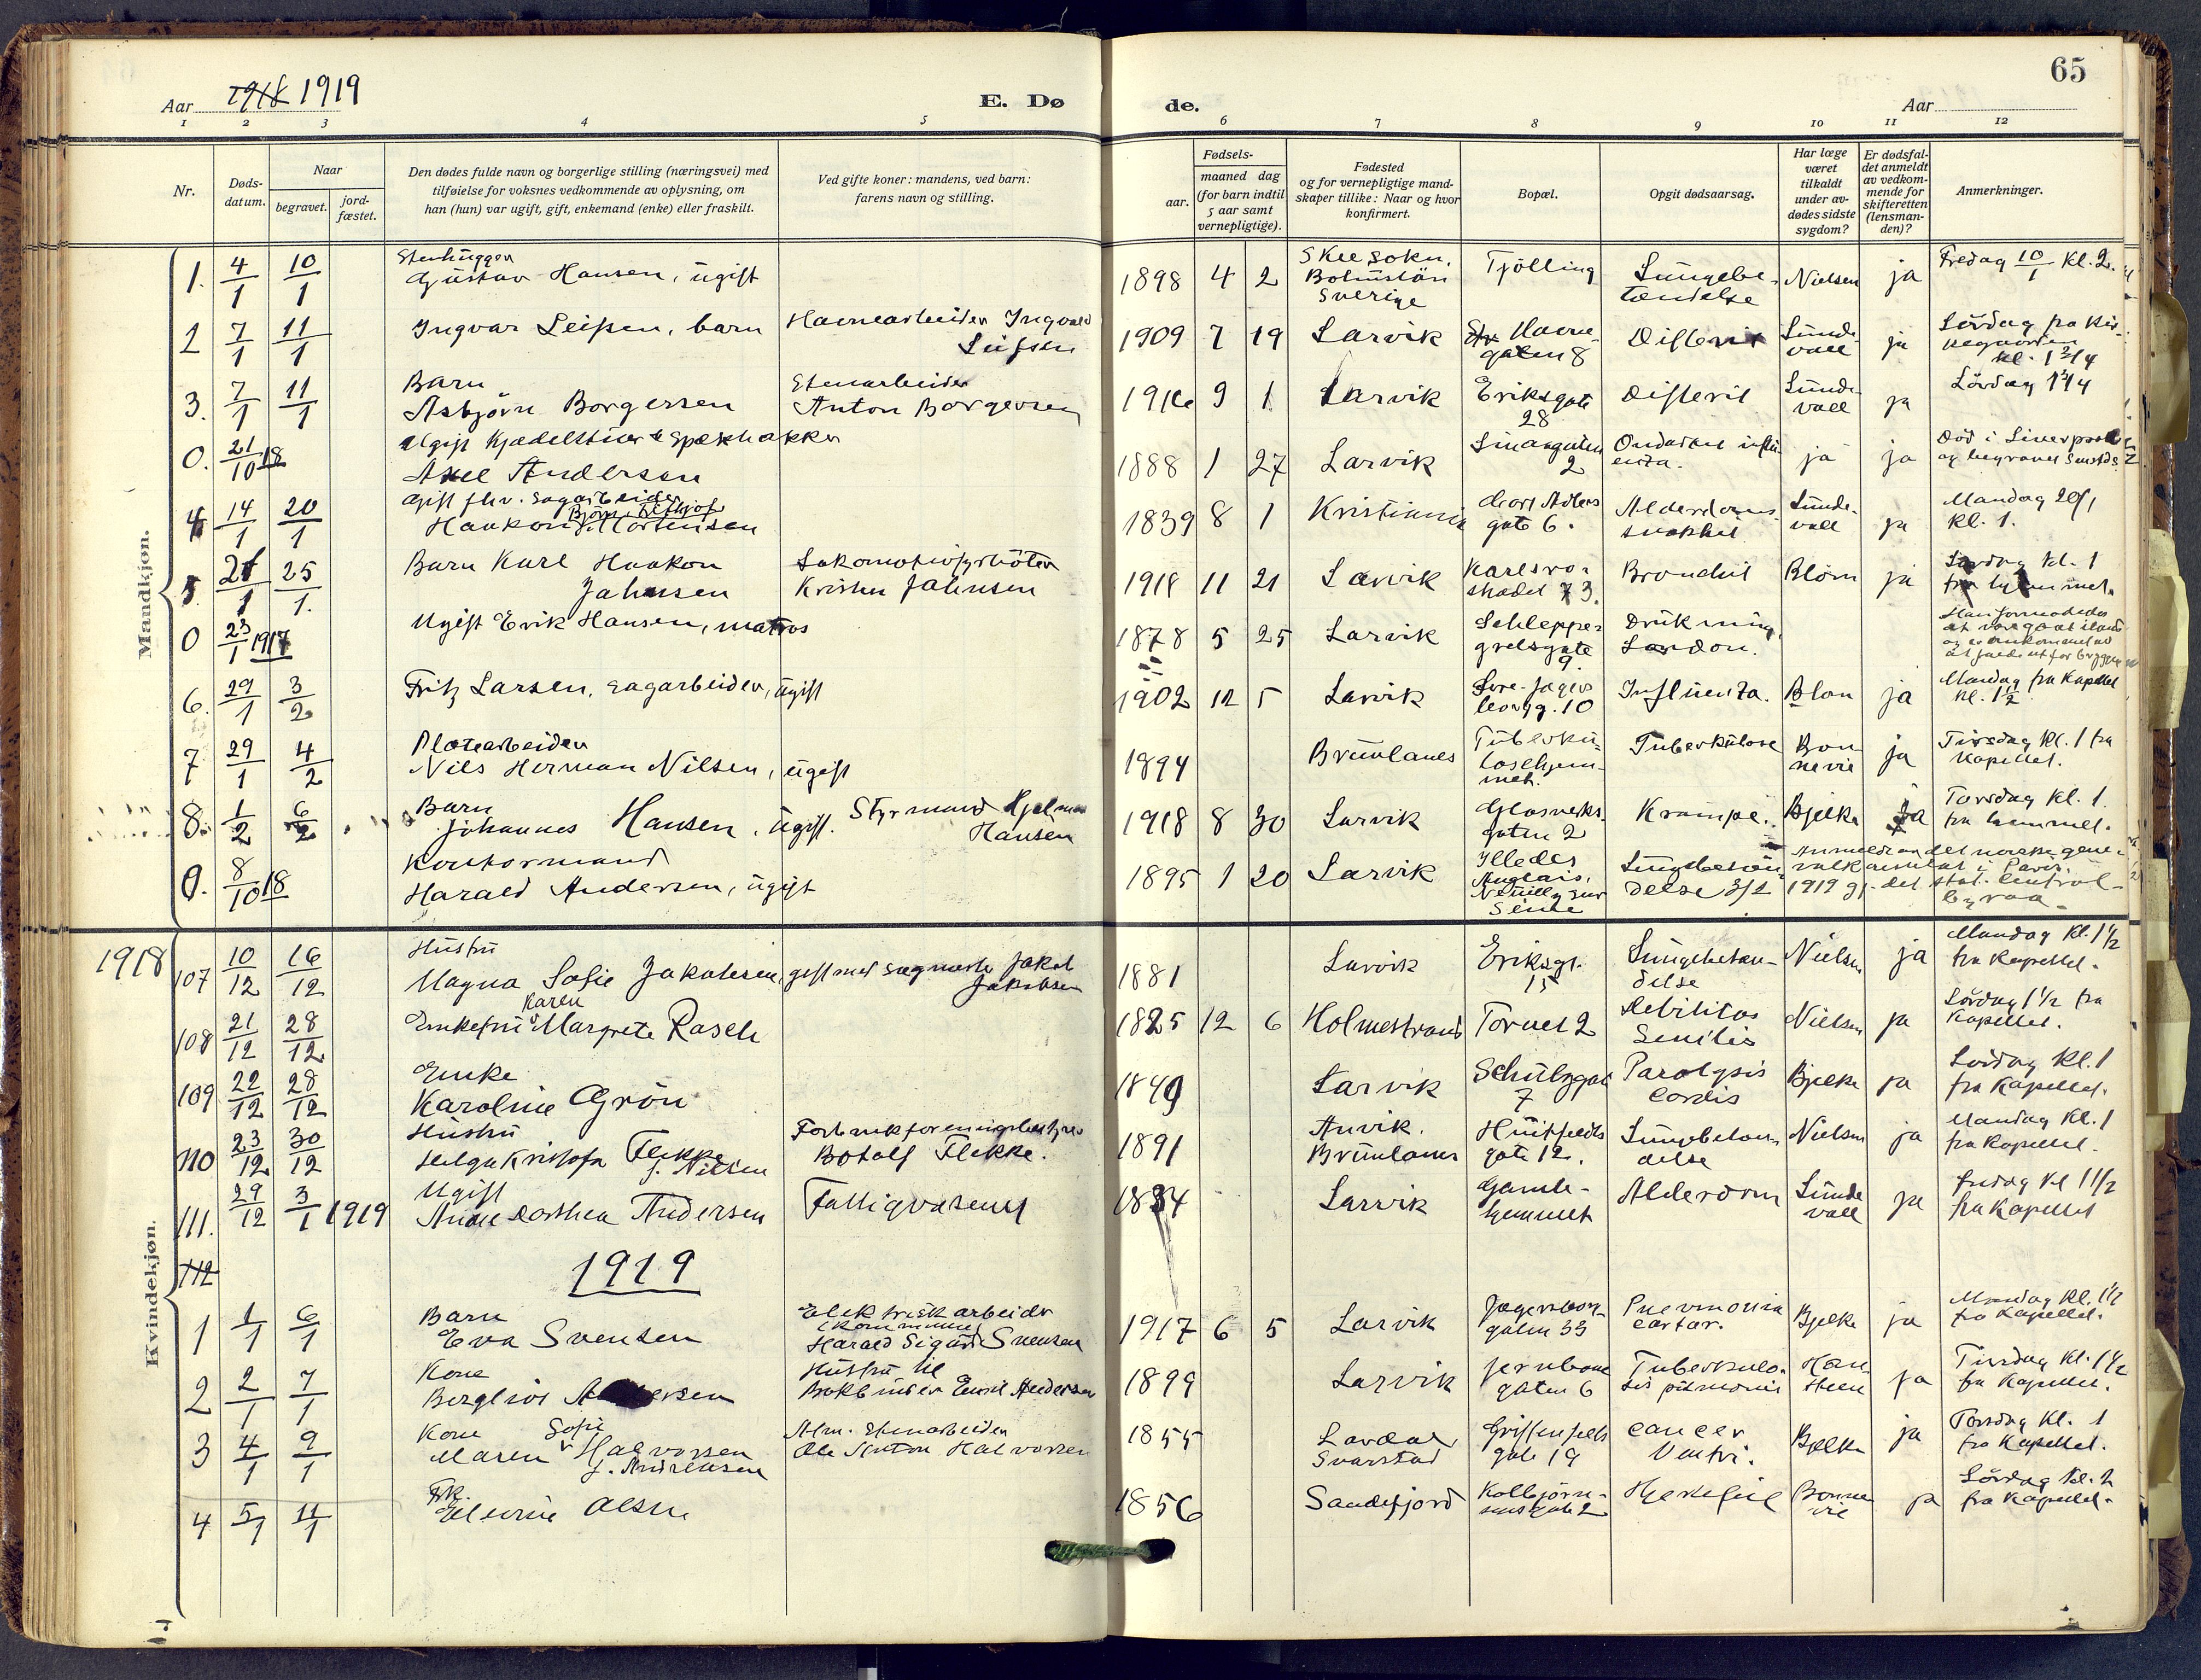 65
Aar 1918 1919
E. Dø
de.
Aar
1 2 3 4 5 6 7 8 9 10 11 12
Nr.
Døds-
datum.
Naar
begravet.
jord-
fæstet.
Den dødes fulde navn og borgerlige stilling (næringsvei) med
tilføielse for voksnes vedkommende av oplysning, om
han (hun) var ugift, gift, enkemand (enke) eller fraskilt.
Ved gifte koner: mandens, ved barn:
farens navn og stilling.
aar.
Fødsels-
maaned dag
(for barn indtil
5 aar samt
vernepligtige).
Fødested
og for vernepligtige mand-
skaper tillike: Naar og hvor
konfirmert.
Bopæl.
Opgit dødsaarsag.
Har læge
været
tilkaldt
under av-
dødes sidste
sygdom?
Er dødsfal-
det anmeldt
av vedkom-
mende for
skifteretten
(lensman-
den)?
Anmerkninger.
Mandkjøn.
1. 4/1 10/1
Stenhugger
Gustav Hansen, ugift
1898 4 2
Skee sokn.
Bohuslän
Sverige
Tjölling
Lungebe-
tændelse
Nielsen
ja
Fredag 10/1 kl. 2.
2 7/1 11/1
Ingvar Leifsen, barn
Havnearbeider Ingvald
Leifsen
1909 7 19
Larvik
Havne-
gaten 8
Difterit
Lunde-
vall
ja
Lördag fra kir-
kegaarden
kl. 1 3/4
3. 7/1 11/1
Barn
Asbjørn Borgersen
Stenarbeider
Anton Borgersen
1916 9 1
Larvik
Eriksgate
28
Difterit
Lunde-
vall
ja
Lördag 1 3/4
0. 21/10 18
Ugift Kjedelstuer & Spækhakker
Axel Andersen
1888 1 27
Larvik
2
Ondartet influ
enza.
ja
ja
Död i Liverpool
og begravet sammesteds
4 14/1 20/1
Gift fhv. sagarbeider
Haakon Mortensen
1839 8 1
Kristiania
Cort Adlers
gate 6.
Alderdoms-
svakhet
Lunde-
vall
ja
Mandag 20/1
kl. 1.
5. 21/1 25/1.
Barn Karl Haakon
Jahnsen
Lokomotivfyrböter
Kristen Jahnsen
1918 11 21
Larvik
Karlsro-
stradet 73.
Bronchit
Blom
ja
Lördag kl. 1
fra hjemmet.
0 23/1 1917
Ugift Erik Hansen, matros
1878 5 25
Larvik
Schleppe-
grelsgate
9.
Drukning,
London.
6. 29/1 3/2
Fritz Larsen, sagarbeider, ugift
1902 12 5
Larvik
Influenza.
Blom
ja
Mandag fra Kapellet
kl. 1 1/2
7 29/1 4/2
Platearbeider
Nils Herman Nilsen, ugift
1894
Brunlanes
Tuberku-
losehjem-
met.
Tuberkulose
Bon-
nevie
ja
Tirsdag kl. 1 fra
Kapellet.
8. 1/2 6/2
Barn
Johannes Hansen, ugift.
Styrmand Hjalmar
Hansen
1918 8 30
Larvik
Glasverks-
gaten 2
Krampe.
Bjelke
ja
Torsdag kl. 1.
fra hjemmet.
0. 8/10 18
Kontormand
Harald Andersen, ugift
1895 1 20
Larvik
Neuilly sur
Seine
Lungebetæn-
delse 3/2
Anmeldt av det norske gene-
ralkonsulat i Paris.
1919 gj. det stat. Central-
byraa.
Kvindekjøn.
1918
107 10/12 16/12
Hustru
Magna Sofie Jakobsen,
gift med sagmester Jakob
Jakobsen
1881
Larvik
Eriksgt.
15
Lungebetæn-
delse
Nielsen
ja
Mandag kl. 1 1/2
fra Kapellet.
108 21/12 28/12
Karen
Enkefru Margrete Rasch
1825 12 6
Holmestrand
Torvet 2
Debilitas
Senilis
Nielsen
ja
Lördag 1 1/2 fra
Kapellet.
109 22/12 28/12
Enke
Karoline Grön
1849
Larvik
Schultzgate
7
Paralysis
Cordis
Bjelke
ja
Lördag kl. 1
fra Kapellet.
110 23/12 30/12
Hustru
Helga Kristofa Flekke
f. Nilsen
Forbruksforeningsbestyrer
Botolf Flekke.
1891
Anvik.
Brunlanes
Huitfeldts
gate 12.
Lungebetæn-
delse
Nielsen
ja
Mandag kl. 1
fra Kapellet.
111. 29/12 3/1 1919
Ugift
Anne Dorthea Andersen
Fattigvæsenet
1834
Larvik
Gamle-
hjemmet
Alderdom
Lunde
vall
ja
Fredag kl 1 1/2
fra Kapellet
112
1919
1 1/1 6/1
Barn
Eva Svensen
Elektriskarbeider
(kommunen)
Harald Sigurd Svensen
1917 6 5
Larvik
Jegersborg-
gaten 33
Pneumonia
catar.
Bjelke
ja
Mandag kl. 1 1/2
fra Kapellet.
2 2/1 7/1
Kone
Bergliot Andersen
Hustru til
Bokbinder Emil Andersen
1899
Larvik
Jernbane
gaten 6
Tuberkulo-
sis pulmonis
Han-
steen
ja
Tirsdag kl. 1 1/2
fra Kapellet.
3 4/1 9/1
Kone Sofie
Maren Halvorsen
f. Andreasen
Alm. Stenarbeider
Ole Anton Halvorsen
1855
Lardal
Svarstad
Griffenfelds
gate 19
Cancer
Ventri.
Bjelke
ja
Torsdag kl. 1
fra Kapellet.
4 5/1 11/1
Frk.
Elevine Olsen
1856
Sandefjord
Kolbjörn-
sens gate 2
Hjertefeil
Bonne
vie
ja
Lördag kl. 2
fra Kapellet.